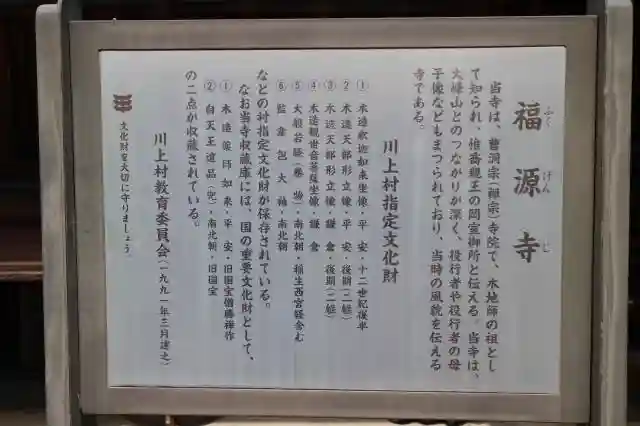 福源寺
ふく げん じ
当寺は、曹洞宗(禅宗)寺院で、木地師の祖とし
て知られ、惟喬親王の閑室御所と伝える。当寺は、
大峰山とのつながりが深く、役行者や役行者の母
子像などもまつられており、当時の風貌を伝える
寺である。
川上村指定文化財
① 木造釈迦如来坐像・平安・十二世紀後半
② 木造天部形立像・平安・後期(二躯)
③ 木造天部形立像・鎌倉・後期(二躯)
④ 木造観世音菩薩坐像・鎌倉
⑤ 大般若経(巻物)・南北朝・稲生西宮経含む
⑥ 藍韋包大袖・南北朝
などの村指定文化財が保存されている。
なお当寺収蔵庫には、国の重要文化財として、
① 木造薬師如来・平安・旧国宝僧勝禅作
② 自天王遺品(兜)・南北朝・旧国宝
の二点が収蔵されている。
川上村教育委員会(一九九一年三月建之)
文化財を大切に守りましょう